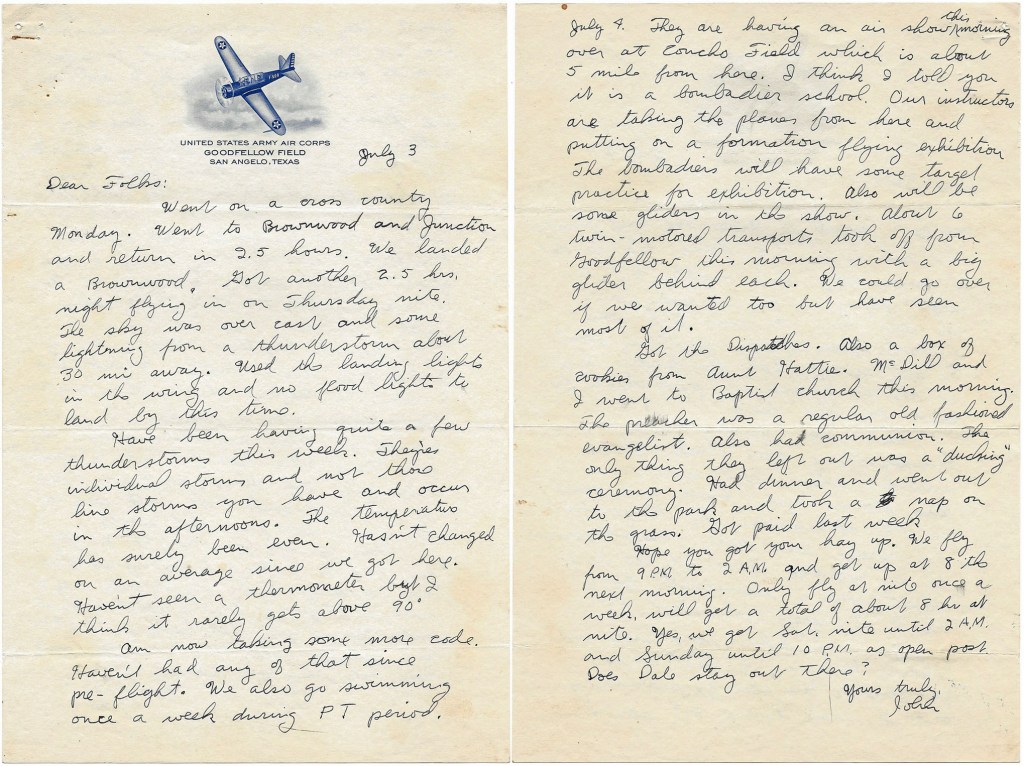 UNITED STATES ARMY AIR CORPS
GOODFELLOW FIELD
SAN ANGELO, TEXAS
July 3
Dear Folks:
Went on a cross county
Monday. Went to Brownwood and Junction
and return in 2.5 hours. We landed
a Brownwood. Got another 2.5 hrs.
night flying in on Thursday nite.
The sky was over cast and some
lightning from a thunderstorm about
30 mi away. Used the landing lights
in the wing and no flood lights to
land by this time.
Have been having quite a few
thunderstorms this week. Theyres
individual storms and not those
line storms you have and occur
in the afternoons. The temperature
has surely been even. Hasn't changed
on an average since we got here.
Haven't seen a thermometer but I
think it rarely gets above 90°
Am now taking some more code.
Haven't had any of that since
pre-flight. We also go swimming
once a week during PT period.
July 4. They are having an air show this morning
over at Concho Field which is about
5 mile from here. I think I told you
it is a bombadier school. Our instructors
are taking the planes from here and
putting on a formation flying exhibition
The bombadiers will have some target
practice for exhibition. Also will be
some gliders in the show. About 6
twin-motored transports took off from
Goodfellow this morning with a big
glider behind each. We could go over
if we wanted too but have seen
most of it.
Got the Dispatches. Also a box of
cookies from Aunt Hattie. McDill and
I went to Baptist church this morning.
The preacher was a regular old fashioned
evangelist. Also had communion. The
only thing they left out was a "ducking"
ceremony. Had dinner and went out
to the park and took a nap on
the grass. Got paid last week
Hope you got your hay up. We fly
from 9 P.M. to 2 A.M. and get up at 8 the
next morning. Only fly at nite once a
week, will get a total of about 8 hr at
nite. Yes, we get Sat. nite until 2 A.M.
and Sunday until 10 P.M. as open post.
Does Dale stay out there?
Yours truly,
John